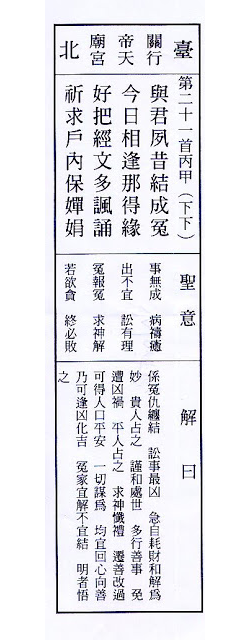 臺北
關帝廟
行天宮
第二十一首丙甲（下下）
與君夙昔結成冤
今日相逢那得緣
好把經文多諷誦
祈求戶內保嬋娟
聖意
事無成 病禱癒
出不宜 訟有理
冤報冤 求神解
若欲貪 終必敗
解曰
係冤仇纏結 訟事最凶 急自耗財和解為
妙 貴人占之 謹和處世 多行善事 免
遭凶禍 平人占之 求神懺禮 遷善改過
可得人口平安 一切謀為 均宜回心向善
乃可逢凶化吉 冤家宜解不宜結 明者悟
之